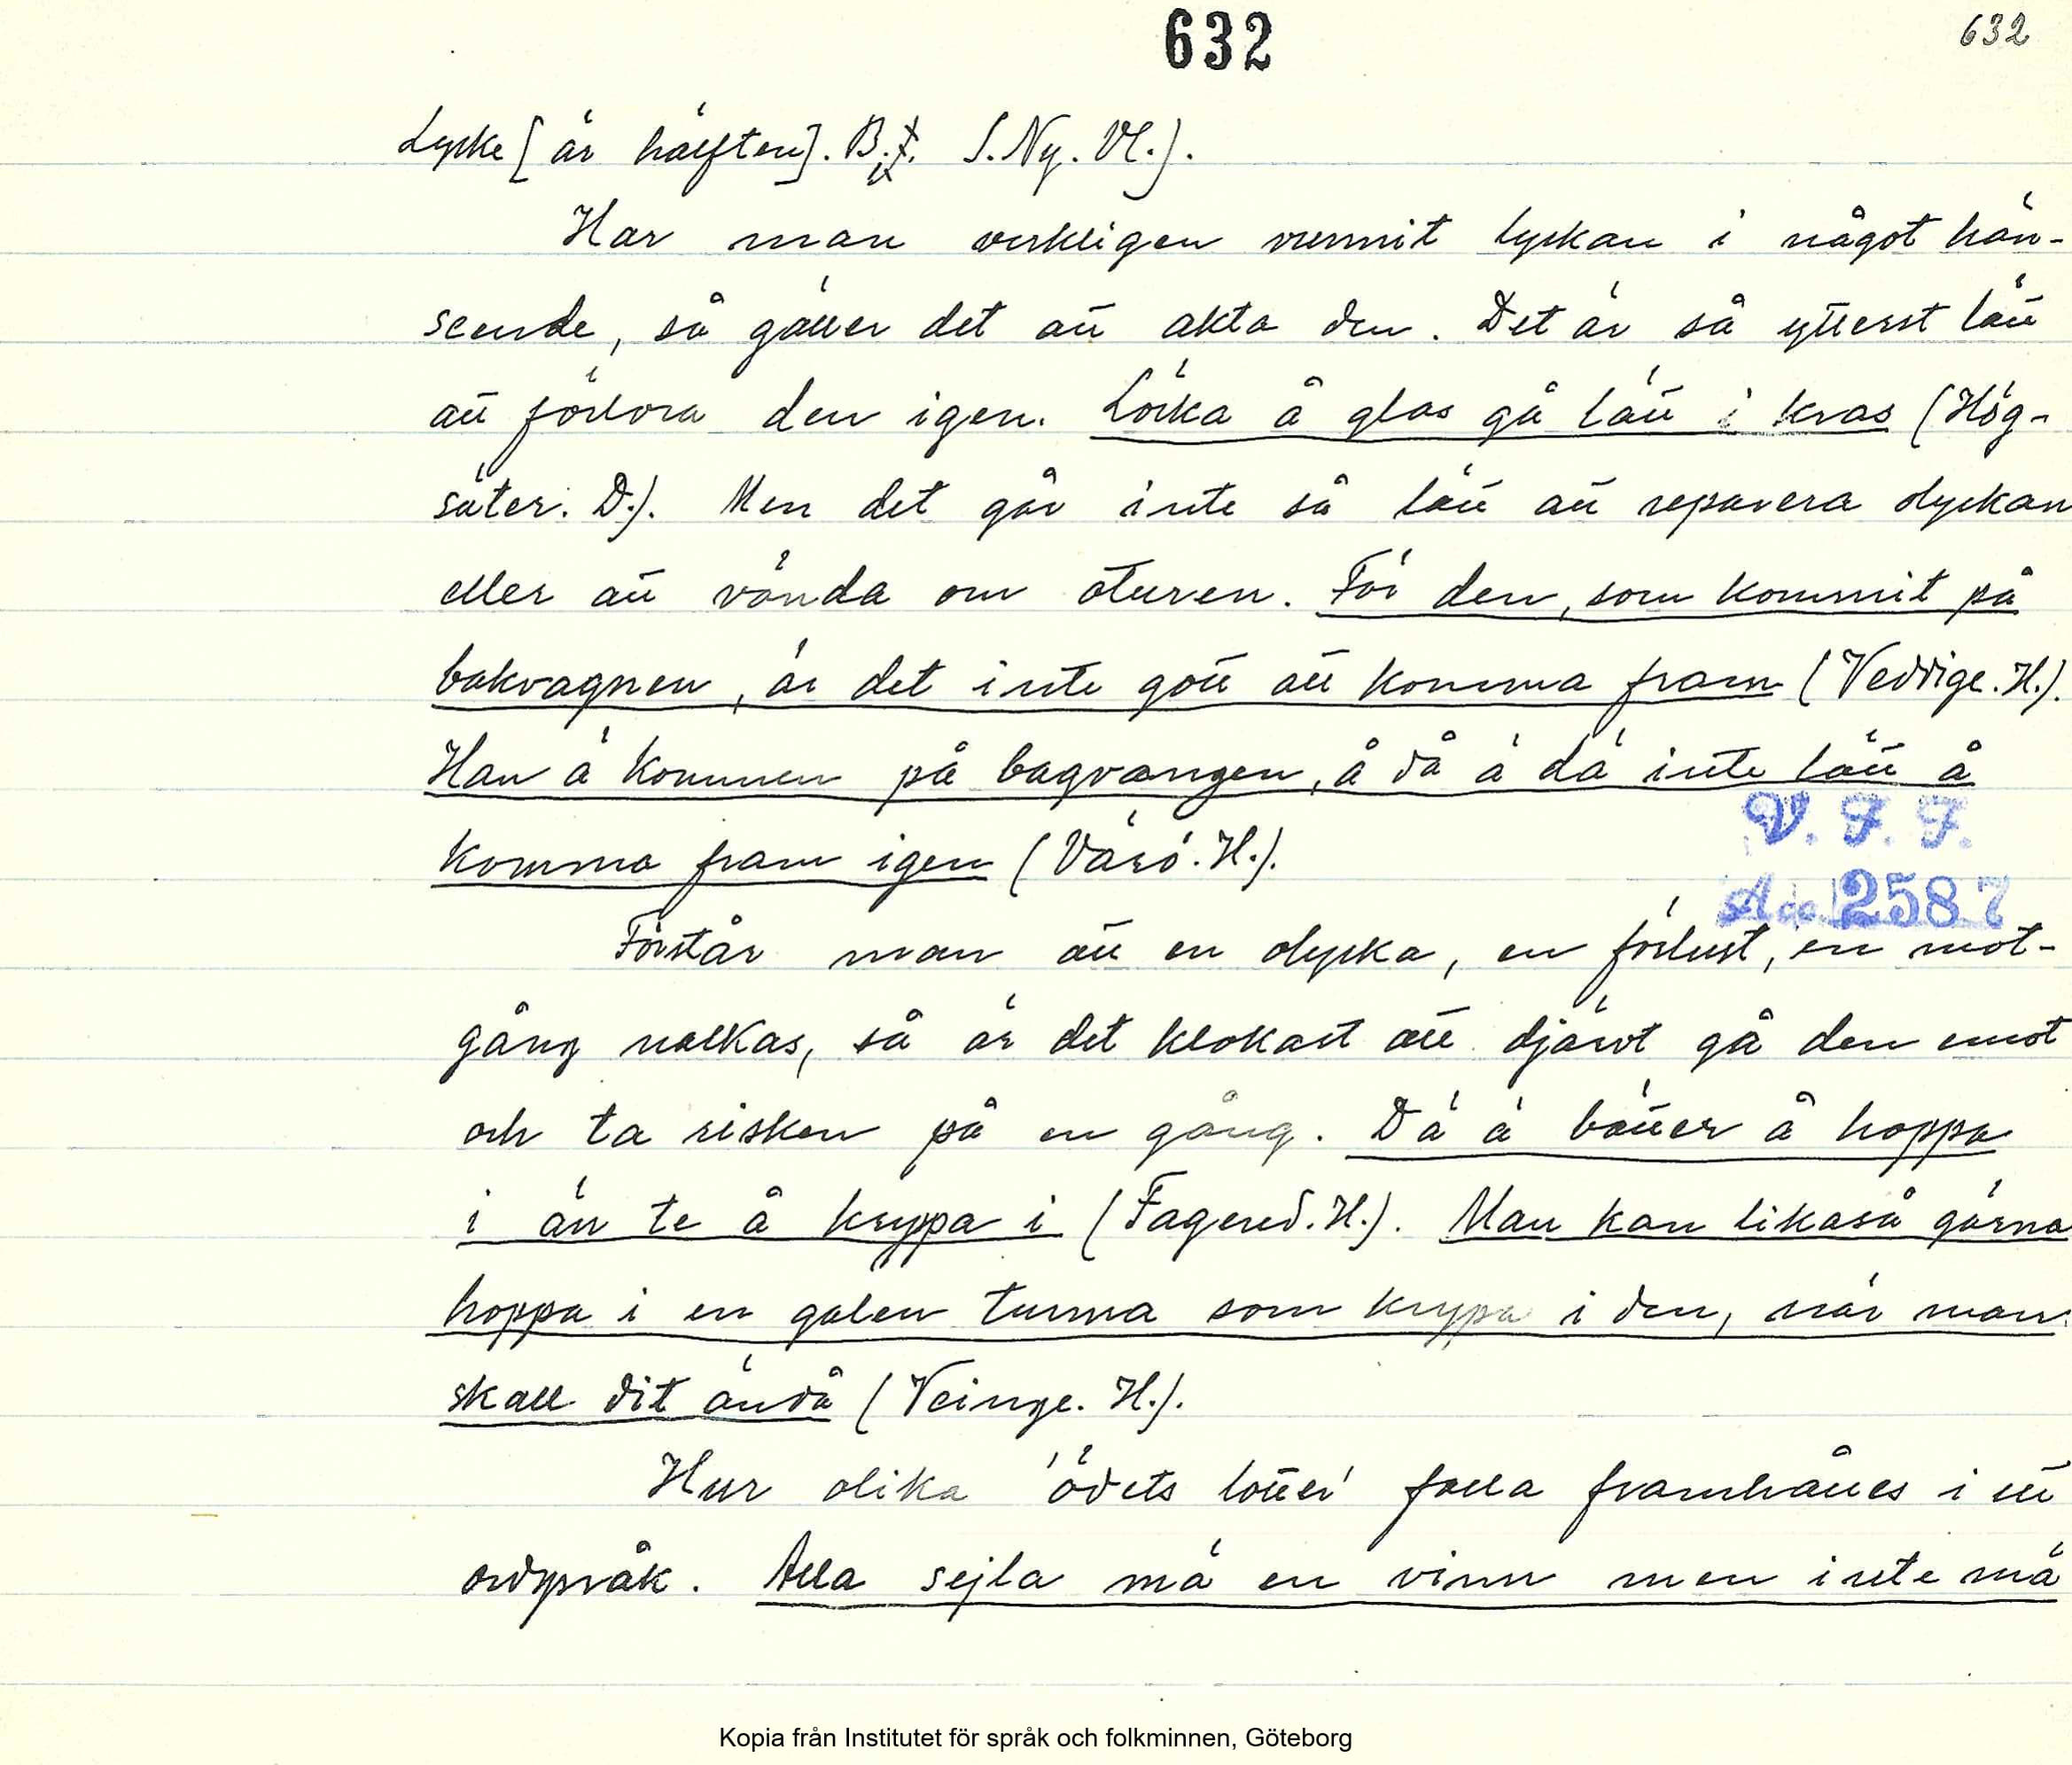 632
632
Lycke [är hälften]. B. S. Ny. Vl.).
Har man verkligen vunnit lyckan i något hän-
seende, så gäller det att akta den. Det är så ytterst lätt
att förlora den igen. Löcka å glas gå lätt i kras (Hög-
säter. D.). Men det går inte så lätt att reparera olyckan
eller att vända om oturen. För den, som kommit på
bakvagnen, är det inte gott att komma fram (Veddige. H.).
Han ä kommen på bagvangen, å då ä dä inte lätt å
komma fram igen (Värö. H.).
V. F. F.
Acc. 2587
Förstår man att en olycka, en förlust, en mot-
gång nalkas, så är det klokast att djärvt gå den emot
och ta risken på en gång. Dä ä bätter å hoppa
i än te å kryppa i (Fagered. H.). Man kan likaså gärna
hoppa i en galen tunna som krypa i den, när man
skall dit ändå (Veinge. H.).
Hur olika 'ödets lotter' falla framhålles i ett
ordspråk. Alla sejla mä en vinn men inte mä
Kopia från Institutet för språk och folkminnen, Göteborg